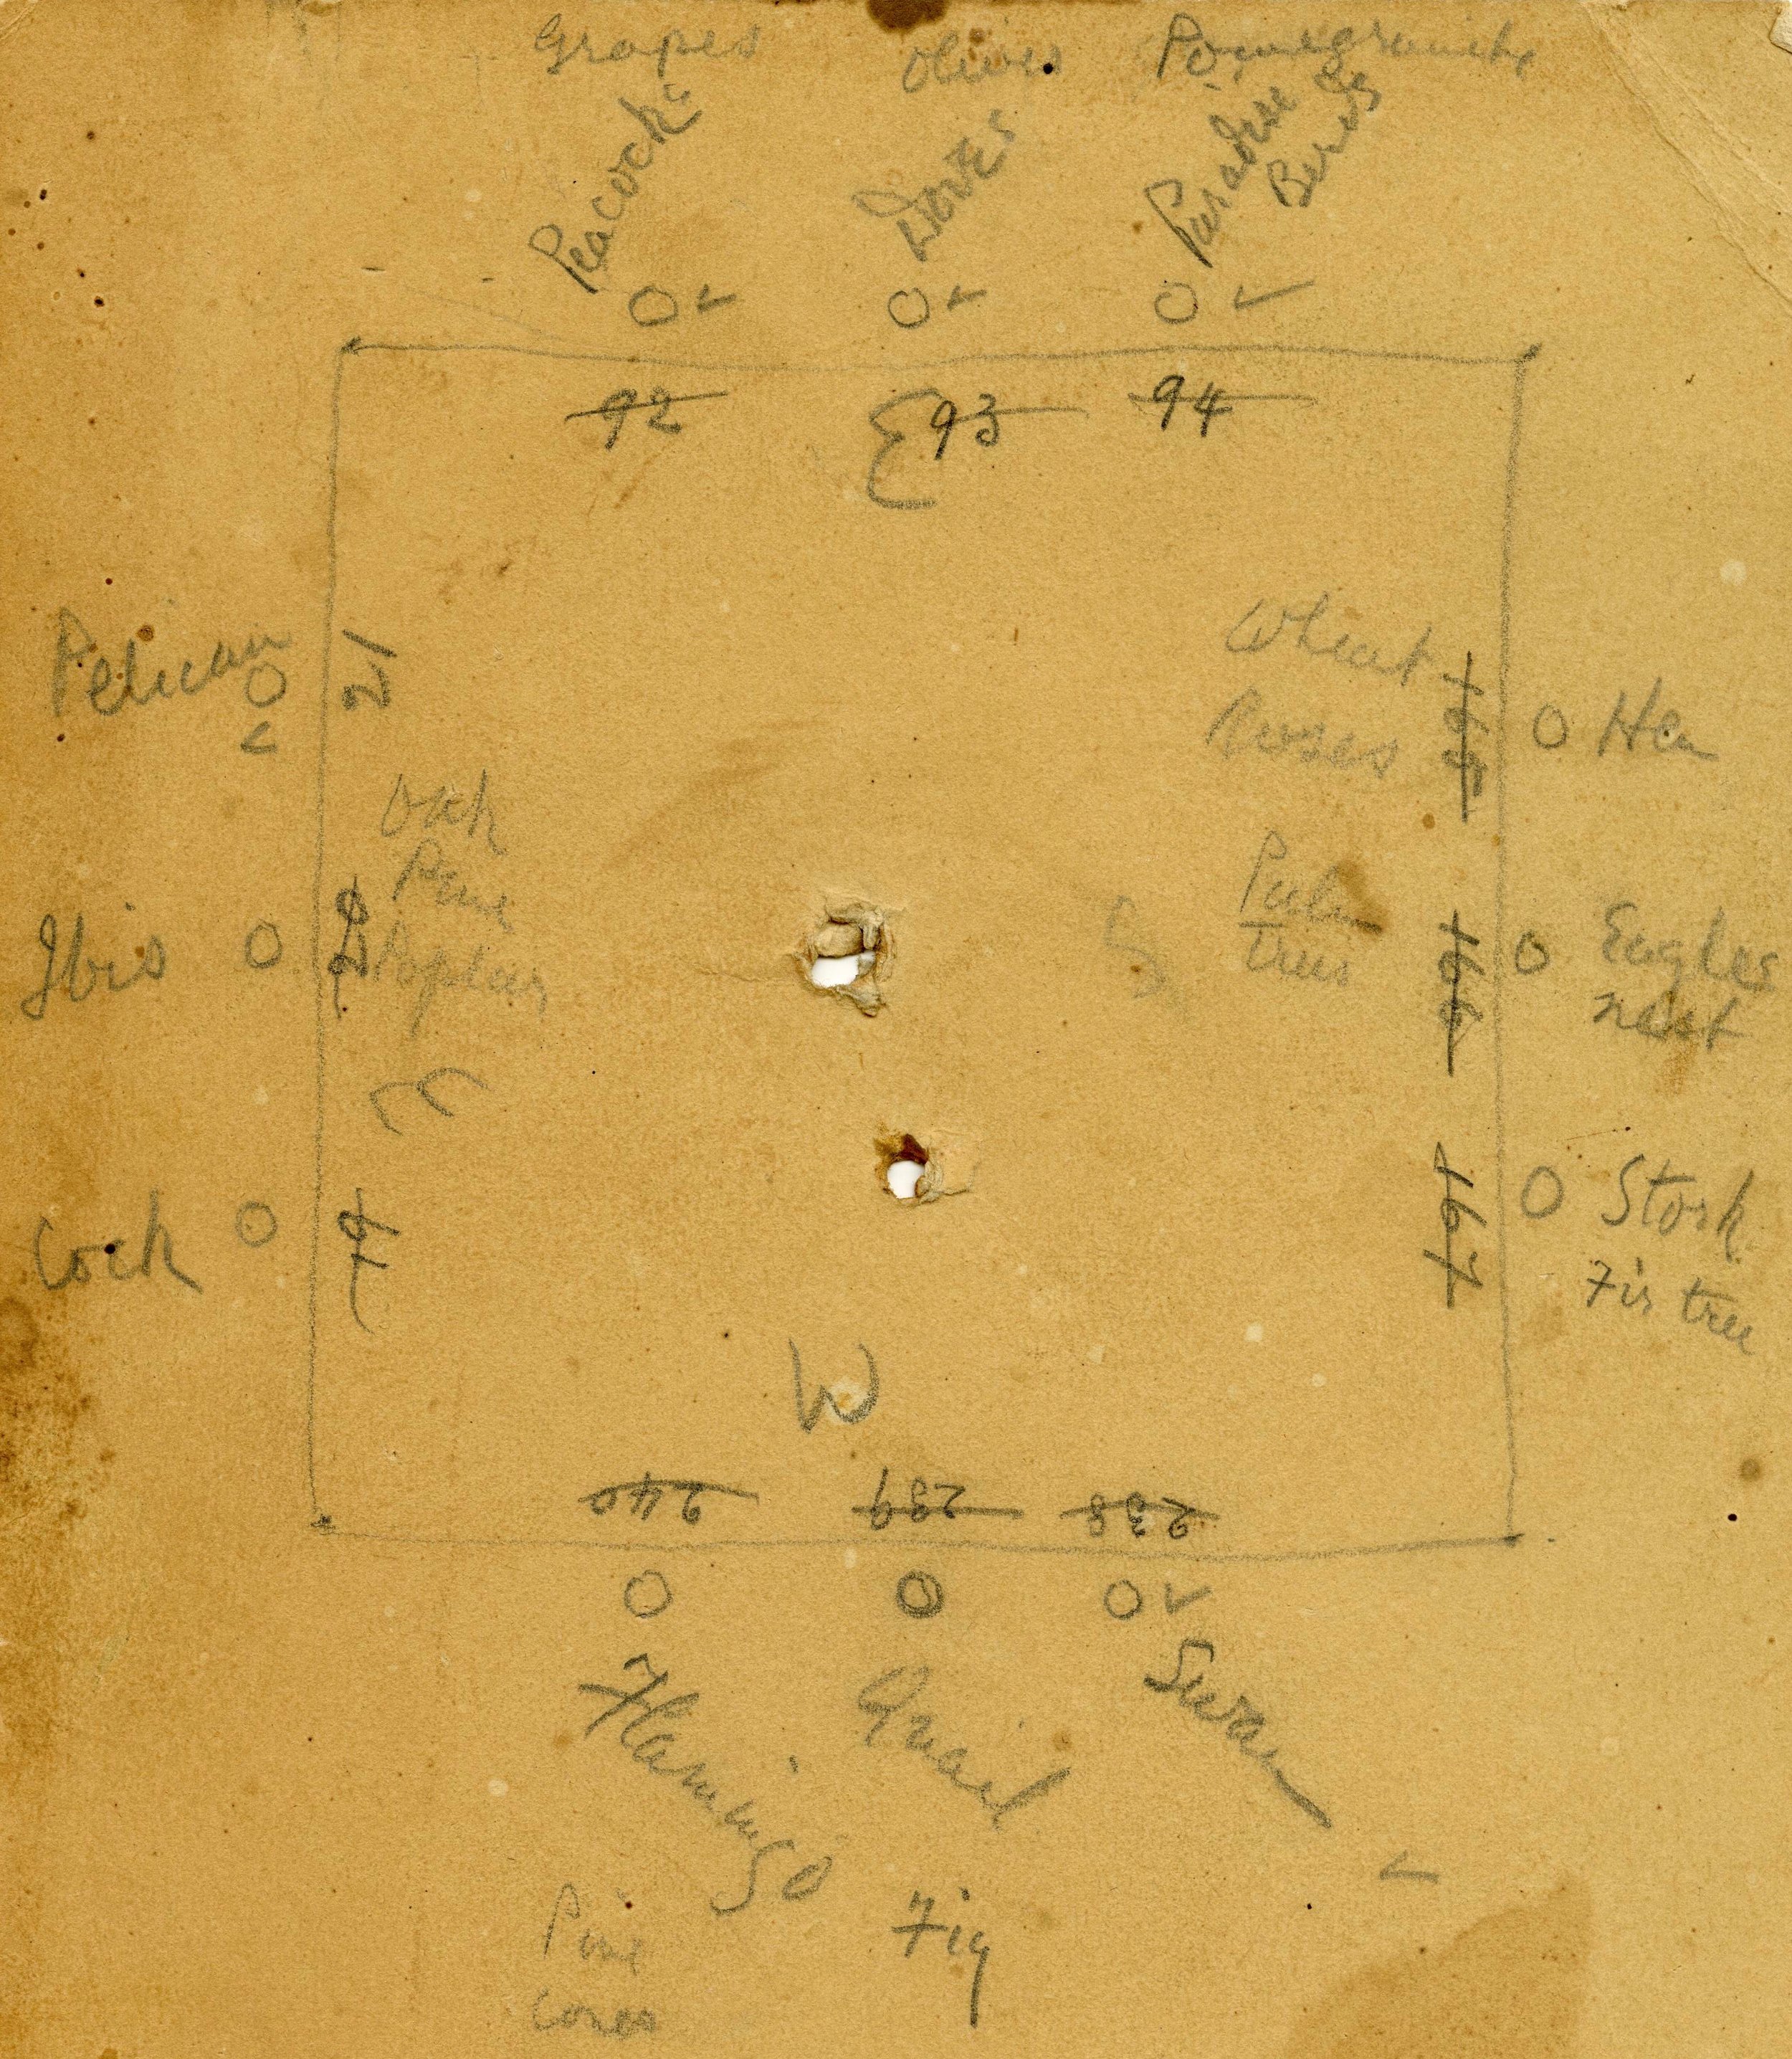 Grapes Olives Pomegranite
Peacocks Doves Paradise
Birds
O O O
92 93 94
E
Pelican O
Wheat
Roses
O Hen
Oak
Pine
Poplar
Ibis O
Palm
trees
S
166
O Eagles
nest
Cock O
167
O Stork
Fir tree
W
240 239 238
O O O
Flamingo Quail Swan
Pine
cones
Fig